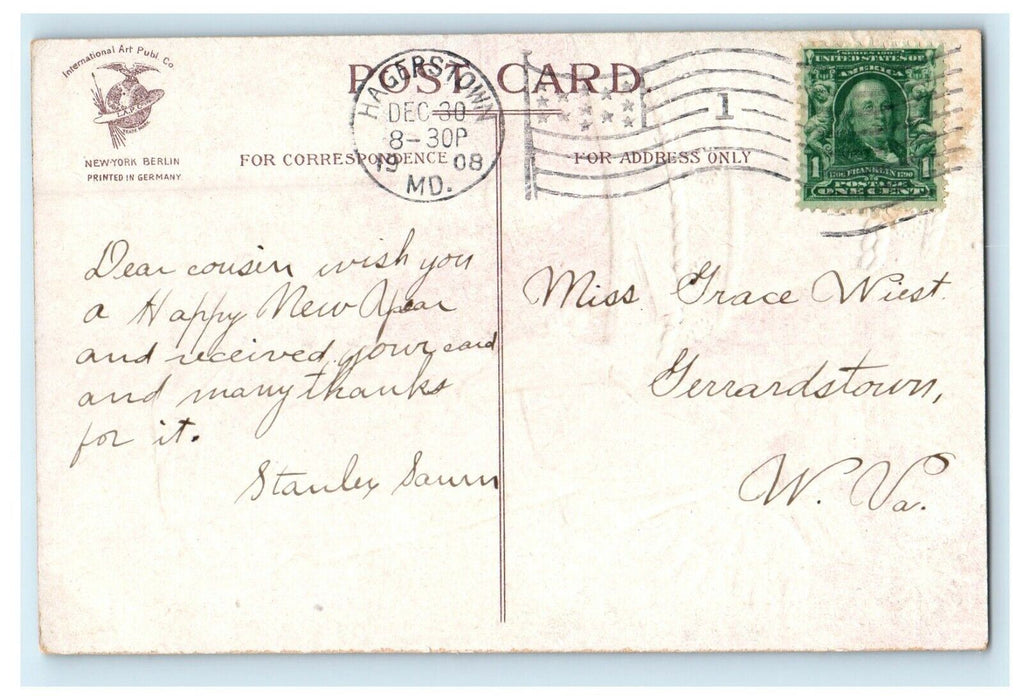 International Art Publ. Co.
NEW-YORK BERLIN
PRINTED IN GERMANY
POST CARD.
HAGERSTOWN
DEC 30
8-30P
1908
MD.
1
FOR CORRESPONDENCE
FOR ADDRESS ONLY
SERIES 1902
UNITED STATES OF
AMERICA
1 1
1706 FRANKLIN 1790
POSTAGE
ONE CENT
Dear cousin wish you
a Happy New Year
and received your card
and many thanks
for it.
Stanley
Miss Grace Wiest.
Gerrardstown,
W. Va.